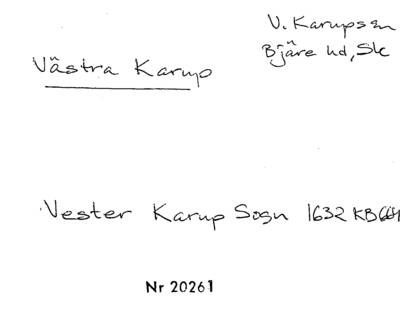 V. Karups sn
Bjäre hd, Sk
Västra Karup
Vester Karup Sogn 1632 KB
Nr 20261